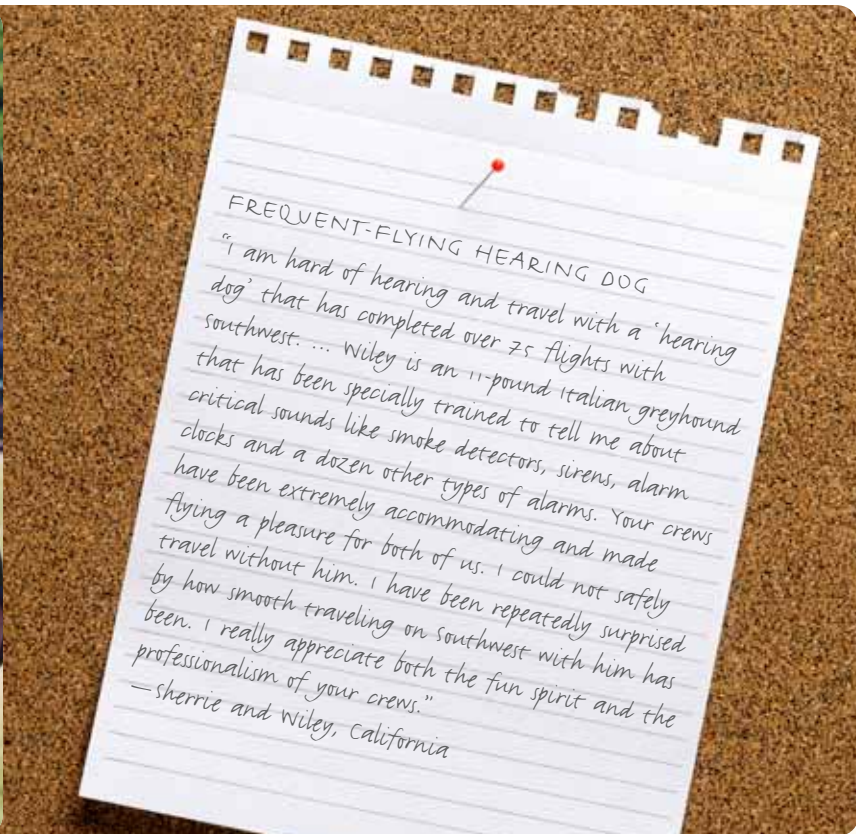 FREQUENT-FLYING HEARING DOG
“I am hard of hearing and travel with a ‘hearing
dog’ that has completed over 75 flights with
Southwest. ... Wiley is an 11-pound Italian greyhound
that has been specially trained to tell me about
critical sounds like smoke detectors, sirens, alarm
clocks and a dozen other types of alarms. Your crews
have been extremely accommodating and made
flying a pleasure for both of us. I could not safely
travel without him. I have been repeatedly surprised
by how smooth traveling on Southwest with him has
been. I really appreciate both the fun spirit and the
professionalism of your crews.”
—Sherrie and Wiley, California